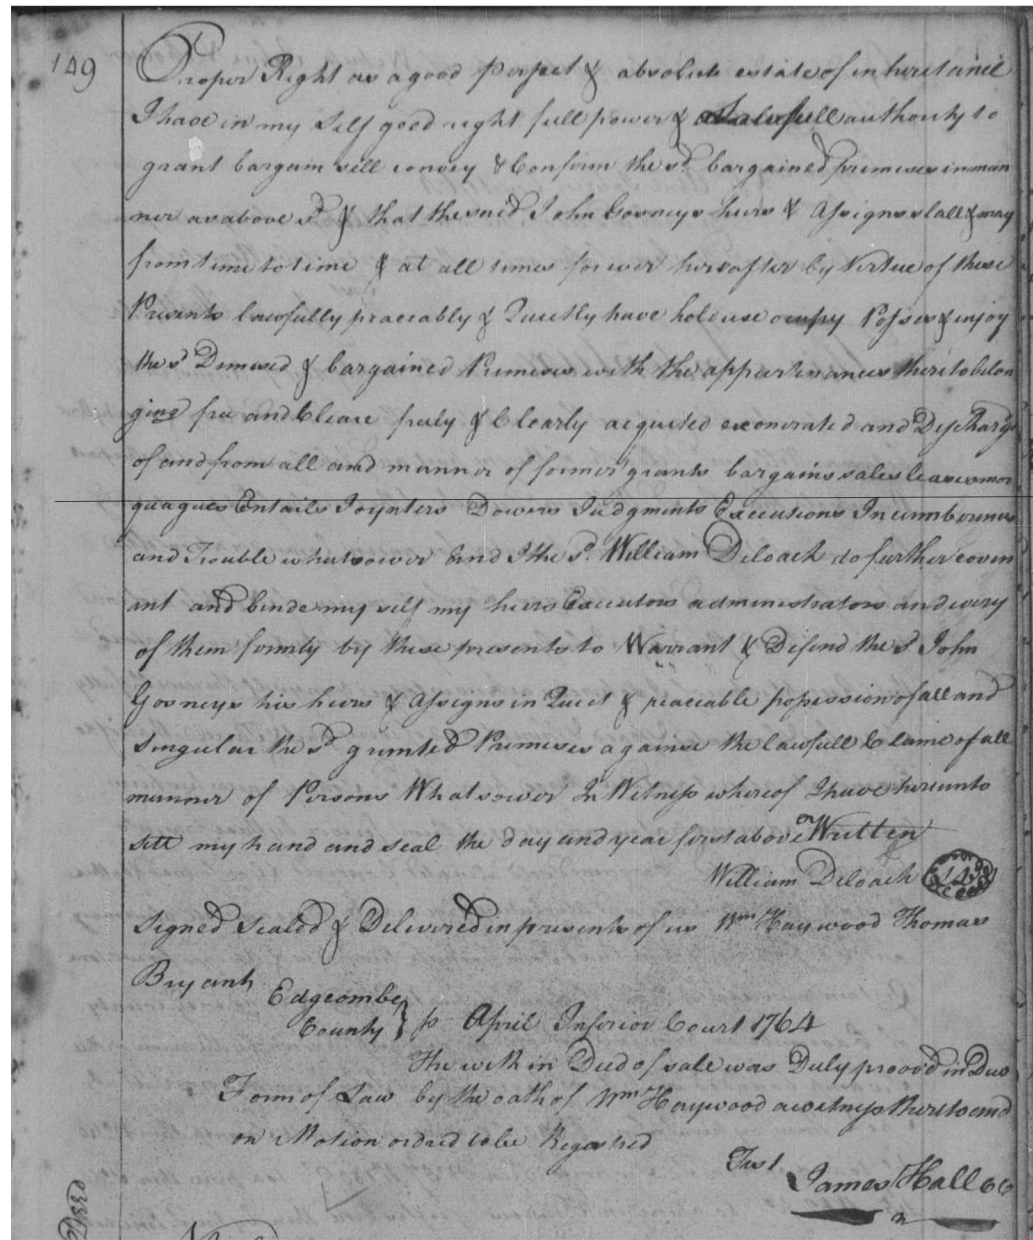 149
Proper Right as a good perfect & absolute estate of inheritance
I have in my Self good right full power & Lawfull authority to
grant bargain sell convey & Confirm the sd. bargained premeses in man
ner as above sd. & that the said John Gosneys heirs & Assigns shall & may
from time to time & at all times forever hereafter by Virtue of these
Presents lawfully peaceably & Quietly have hold use ocupy Possess & injoy
the sd Demised & bargained Premeses with the appurtenances thereto belon
ging free and Cleare freely & Clearly acquited exonerated and Discharg'd
of and from all and manner of former grants bargains sales leases mor
guagues Entails Joynters Dowers Judgments Executions Incumbrances
and Trouble whatsoever And I the sd. William Deloach do further coven
ant and binde my self my heirs Executors administrators and every
of them formly by these presents to Warrant & Defend the sd John
Gosneys his heirs & Assigns in Quiet & peaceable possession of all and
Singular the sd. granted Premeses against the lawfull Claime of all
manner of Persons Whatsoever In Witness whereof I have hereunto
sett my hand and seal the day and year first above on Written
William Deloach
Signed Sealed & Delivered in presents of us Wm Haywood Thomas
Bryant
Edgecombe
County } ss April Inferior Court 1764
The with in Deed of sale was Duly proov'd in Due
Form of Law by the oath of Wm Haywood a witness thereto and
on Motion ordred to be Regestred
Test
James Hall CC
Deed